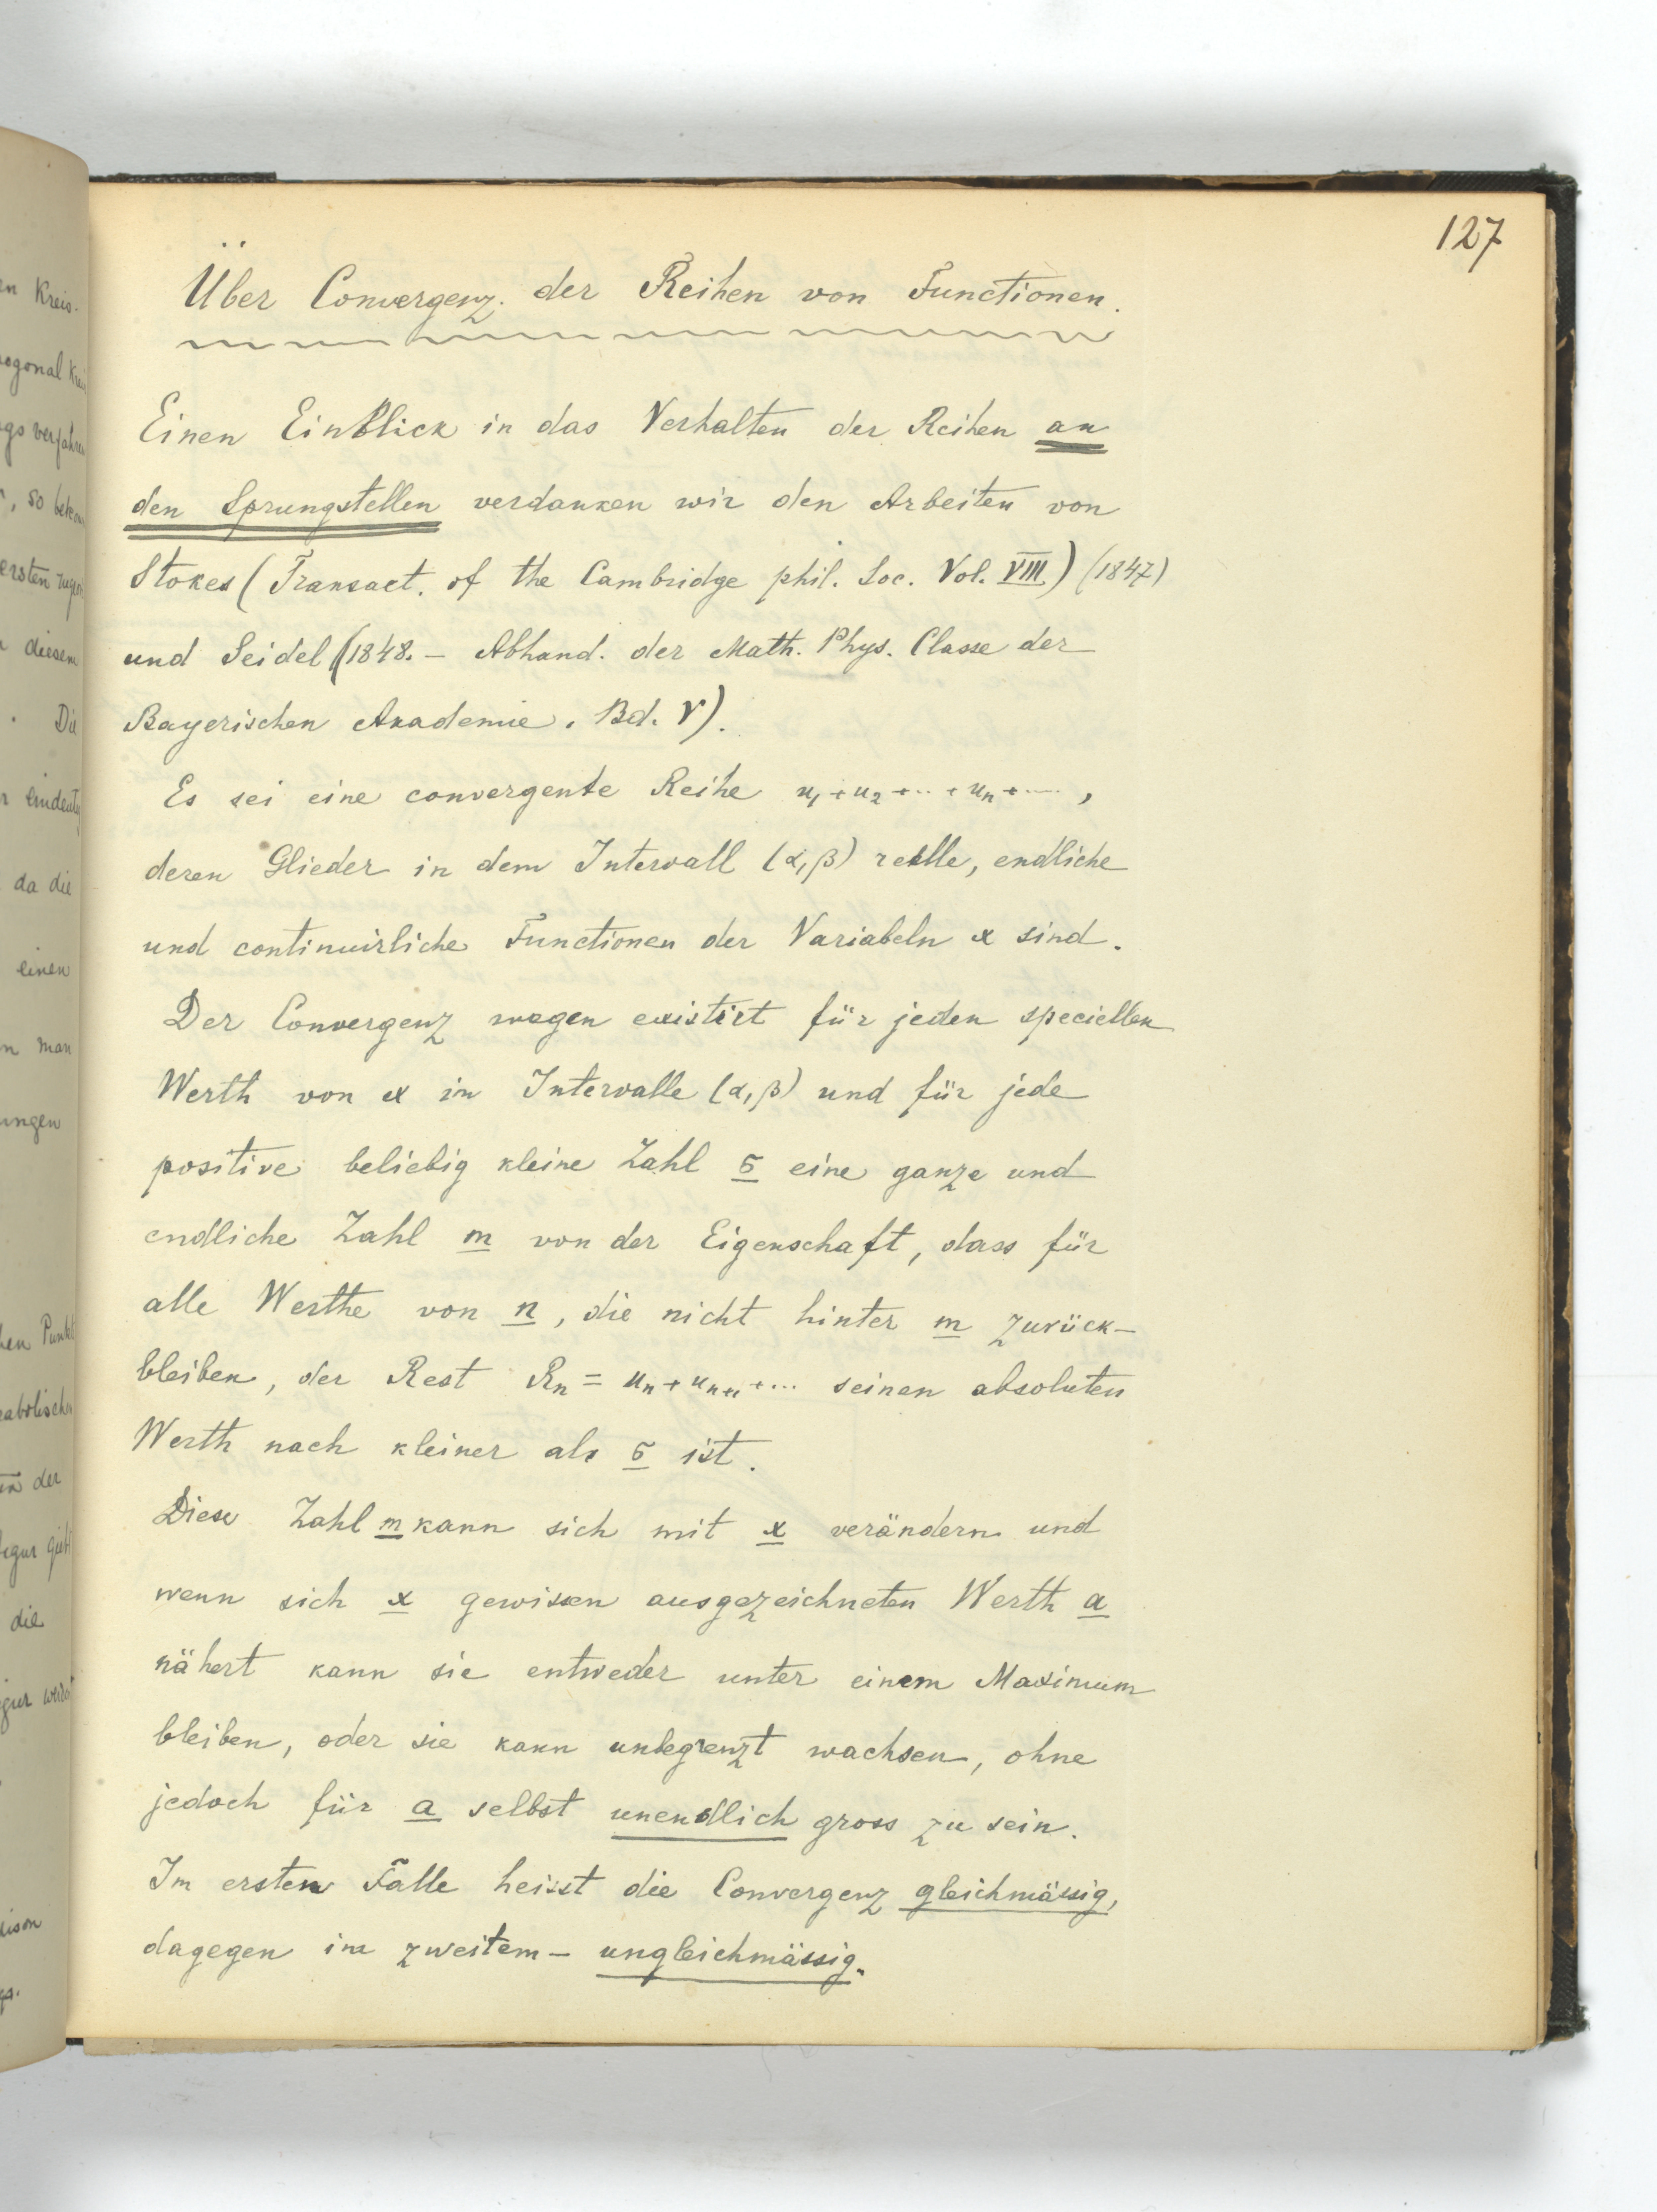 127
Über Convergenz der Reihen von Functionen.
Einen Einblick in das Verhalten der Reihen an
den Sprungstellen verdanken wir den Arbeiten von
Stokes (Transact. of the Cambridge phil. Soc. Vol. VIII.) (1847)
und Seidel (1848. – Abhand. der Math. Phys. Classe der
Bayerischen Akademie. Bd. V).
Es sei eine convergente Reihe u₁+u₂+..+uₙ+....,
deren Glieder in dem Intervall (α,β) reelle, endliche
und continuirliche Functionen der Variabeln x sind.
Der Convergenz wegen existirt für jeden speciellen
Werth von x im Intervalle (α,β) und für jede
positive beliebig kleine Zahl σ eine ganze und
endliche Zahl m von der Eigenschaft, dass für
alle Werthe von n, die nicht hinter m zurück-
bleiben, der Rest Rₙ = uₙ+uₙ₊₁+... seinen absoluten
Werth nach kleiner als σ ist.
Diese Zahl m kann sich mit x verändern und
wenn sich x gewissen ausgezeichneten Werth a
nähert kann sie entweder unter einem Maximum
bleiben, oder sie kann unbegrenzt wachsen, ohne
jedoch für a selbst unendlich gross zu sein.
Im ersten Falle heisst die Convergenz gleichmässig,
dagegen im zweitem – ungleichmässig.
en Kreis-
ogonal Kreis
, so
ersten
diesem
. Die
da die
einen
n man
ungen
hen Punkt
der
die